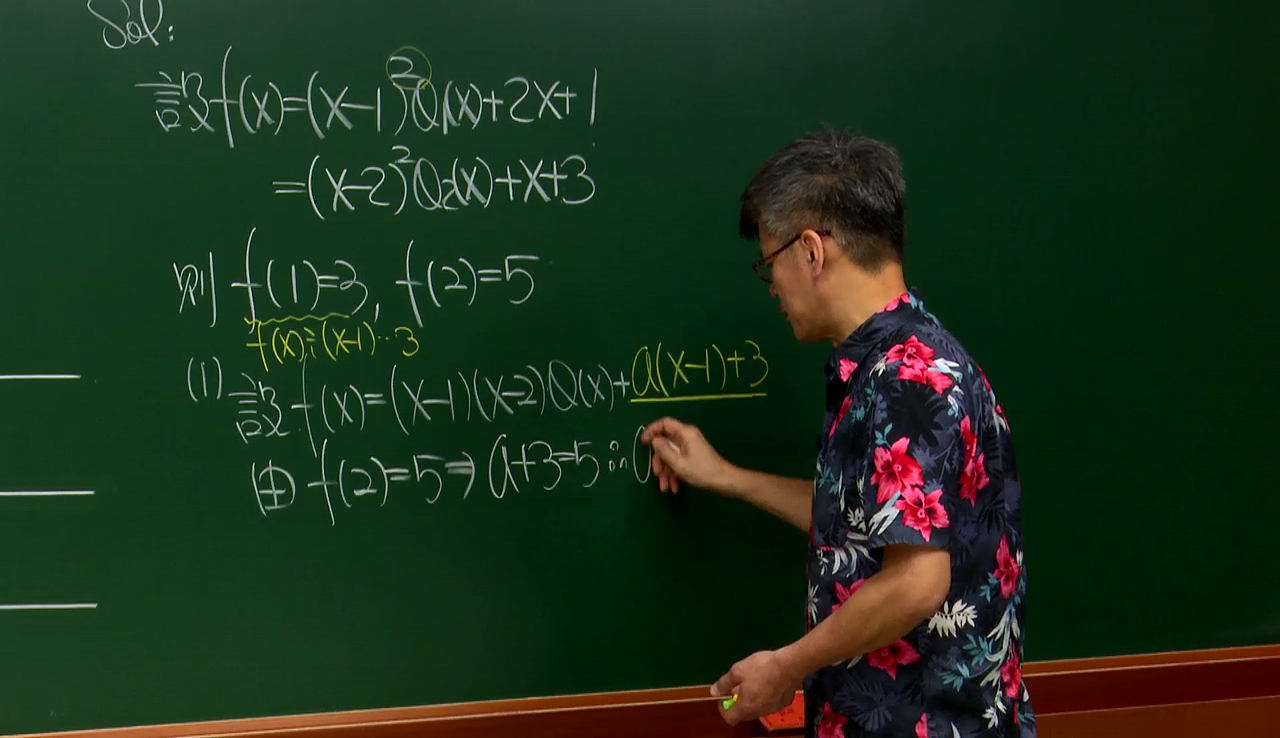 Sol:
設f(x)=(x-1)²Q₁(x)+2x+1
=(x-2)²Q₂(x)+x+3
則 f(1)=3, f(2)=5
f(x)÷(x-1)…3
(1) 設f(x)=(x-1)(x-2)Q(x)+a(x-1)+3
由 f(2)=5⇒a+3=5 ∴a